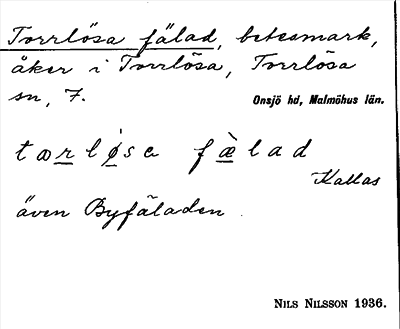 Torrlösa fälad, betesmark,
åker i Torrlösa, Torrlösa
sn, 7.
Onsjö hd, Malmöhus län.
tœrløse fælad
Kallas
även Byfäladen.
NILS NILSSON 1936.